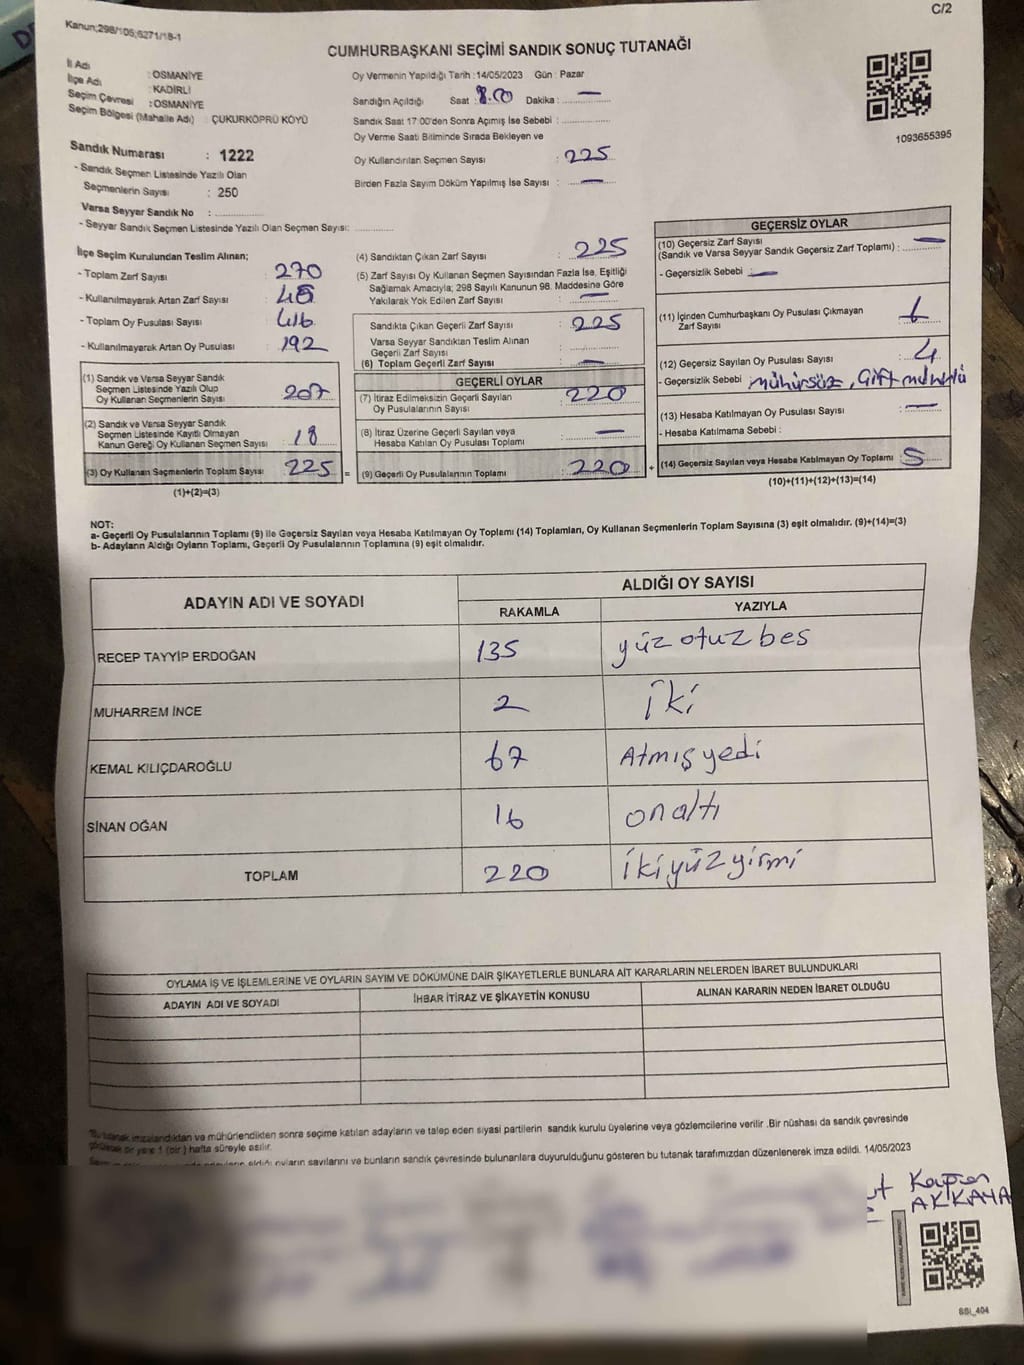 C/2
Kanun;298/105;6271/18-1
CUMHURBAŞKANI SEÇİMİ SANDIK SONUÇ TUTANAĞI
İl Adı : OSMANİYE
İlçe Adı : KADİRLİ
Seçim Çevresi : OSMANİYE
Seçim Bölgesi (Mahalle Adı) ÇUKURKÖPRÜ KÖYÜ
Sandık Numarası : 1222
- Sandık Seçmen Listesinde Yazılı Olan
Seçmenlerin Sayısı : 250
Varsa Seyyar Sandık No : ..............
- Seyyar Sandık Seçmen Listesinde Yazılı Olan Seçmen Sayısı: ............
Oy Vermenin Yapıldığı Tarih : 14/05/2023 Gün : Pazar
Sandığın Açıldığı Saat : 8.00 Dakika : —
Sandık Saat 17:00'den Sonra Açımış İse Sebebi : ..............
Oy Verme Saati Bitiminde Sırada Bekleyen ve
Oy Kullandırılan Seçmen Sayısı : 225
Birden Fazla Sayım Döküm Yapılmış İse Sayısı : —
1093655395
İlçe Seçim Kurulundan Teslim Alınan;
- Toplam Zarf Sayısı : 270
- Kullanılmayarak Artan Zarf Sayısı :
- Toplam Oy Pusulası Sayısı : 416
- Kullanılmayarak Artan Oy Pusulası : 192
(1) Sandık ve Varsa Seyyar Sandık
Seçmen Listesinde Yazılı Olup
Oy Kullanan Seçmenlerin Sayısı : 207
(2) Sandık ve Varsa Seyyar Sandık
Seçmen Listesinde Kayıtlı Olmayan
Kanun Gereği Oy Kullanan Seçmen Sayısı : 18
(3) Oy Kullanan Seçmenlerin Toplam Sayısı : 225 =
(1)+(2)=(3)
(4) Sandıktan Çıkan Zarf Sayısı : 225
(5) Zarf Sayısı Oy Kullanan Seçmen Sayısından Fazla İse, Eşitliği
Sağlamak Amacıyla; 298 Sayılı Kanunun 98. Maddesine Göre
Yakılarak Yok Edilen Zarf Sayısı : —
Sandıkta Çıkan Geçerli Zarf Sayısı : 225
Varsa Seyyar Sandıktan Teslim Alınan
Geçerli Zarf Sayısı : ..............
(6) Toplam Geçerli Zarf Sayısı : —
GEÇERLİ OYLAR
(7) İtiraz Edilmeksizin Geçerli Sayılan
Oy Pusulalarının Sayısı : 220
(8) İtiraz Üzerine Geçerli Sayılan veya
Hesaba Katılan Oy Pusulası Toplamı : —
(9) Geçerli Oy Pusulalarının Toplamı : 220 +
GEÇERSİZ OYLAR
(10) Geçersiz Zarf Sayısı
(Sandık ve Varsa Seyyar Sandık Geçersiz Zarf Toplamı) : —
- Geçersizlik Sebebi : —
(11) İçinden Cumhurbaşkanı Oy Pusulası Çıkmayan
Zarf Sayısı :
(12) Geçersiz Sayılan Oy Pusulası Sayısı : 4
- Geçersizlik Sebebi : mühürsüz, Çift mühürlü
(13) Hesaba Katılmayan Oy Pusulası Sayısı : —
- Hesaba Katılmama Sebebi :
(14) Geçersiz Sayılan veya Hesaba Katılmayan Oy Toplamı : 5
(10)+(11)+(12)+(13)=(14)
NOT:
a- Geçerli Oy Pusulalarının Toplamı (9) ile Geçersiz Sayılan veya Hesaba Katılmayan Oy Toplamı (14) Toplamları, Oy Kullanan Seçmenlerin Toplam Sayısına (3) eşit olmalıdır. (9)+(14)=(3)
b- Adayların Aldığı Oyların Toplamı, Geçerli Oy Pusulalarının Toplamına (9) eşit olmalıdır.
ADAYIN ADI VE SOYADI ALDIĞI OY SAYISI
RAKAMLA YAZIYLA
RECEP TAYYİP ERDOĞAN 135 yüz otuz bes
MUHARREM İNCE 2 İki
KEMAL KILIÇDAROĞLU 67 Atmış yedi
SİNAN OĞAN 16 on altı
TOPLAM 220 İki yüz yirmi
OYLAMA İŞ VE İŞLEMLERİNE VE OYLARIN SAYIM VE DÖKÜMÜNE DAİR ŞİKAYETLERLE BUNLARA AİT KARARLARIN NELERDEN İBARET BULUNDUKLARI
ADAYIN ADI VE SOYADI İHBAR İTİRAZ VE ŞİKAYETİN KONUSU ALINAN KARARIN NEDEN İBARET OLDUĞU
imzalandıktan ve mühürlendikten sonra seçime katılan adayların ve talep eden siyasi partilerin sandık kurulu üyelerine veya gözlemcilerine verilir .Bir nüshası da sandık çevresinde
1 (bir) hafta süreyle asılır.
oyların sayılarını ve bunların sandık çevresinde bulunanlara duyurulduğunu gösteren bu tutanak tarafımızdan düzenlenerek imza edildi. 14/05/2023
AKKAYA
SSI_404